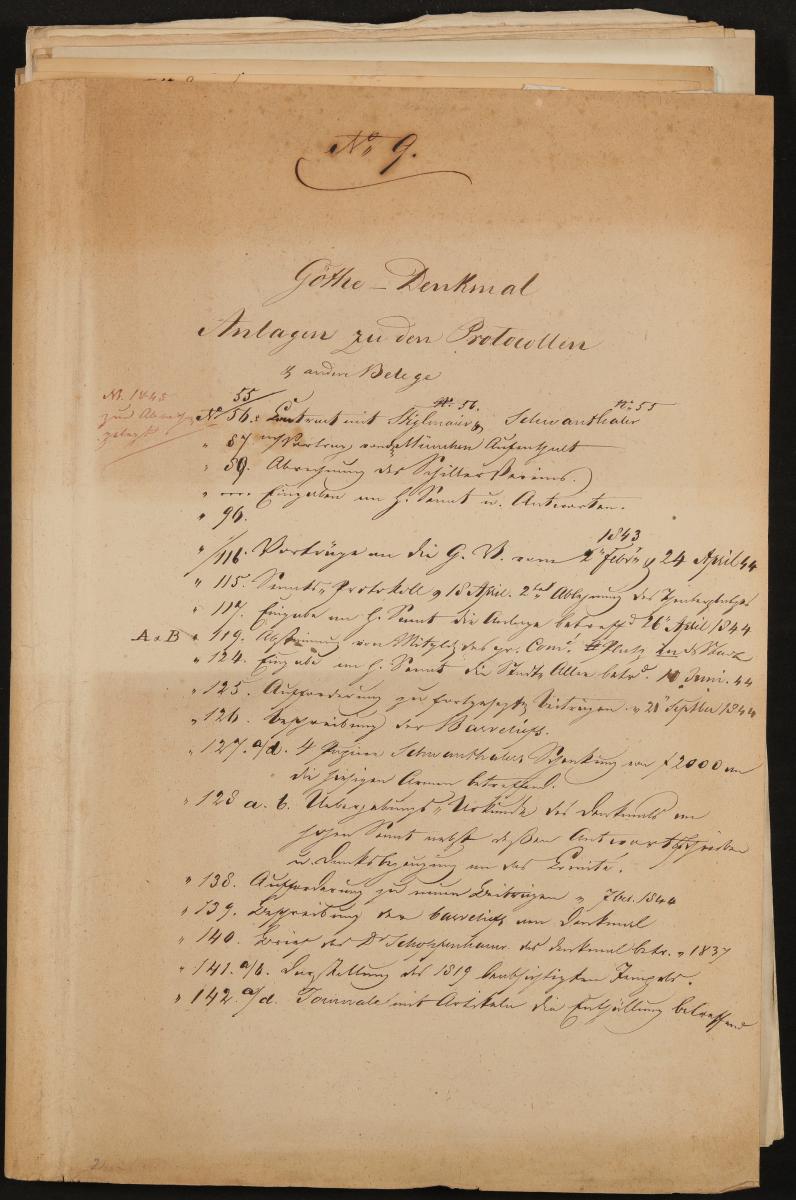 No 9.
Göthe – Denkmal
Anlagen zu den Protocollen
& andere Belege
No. 1845
zur Abrechng
gelegt
55/ No. 56. No 55
No 56. Contract mit Stiglmaier & Schwanthaler
" 87. Vortrag, München Aufenthalt
" 89. Abrechnung des Schillervereins.
" —. Eingaben an h. Senat u. Antworten.
" 96.
1843
" /116. Vorträge an die G. V. vom 2n Febr. & 24 April 44
" 115. Senats-Protokoll 18 April. 2te Ablehnung des Theaterplatzes
" 117. Eingabe an h. Senat die Anlage betreffd 26 April 1844
A & B " 119. Abstimmung von Mitglied. des gr. Comé. Platz
" 124. Eingabe an h. Senat die Stadt Allee betrd. Juni. 44
" 125. Aufforderung zu fortgesetzten Beiträgen. " 20 Septber 1844
" 126. Beschreibung der Basreliefs.
" 127. a/d. 4 Papiere Schwanthalers Schenkung von f 2000 an
die hiesigen Armen betreffend.
" 128 a. b. Uebergabungs-Urkunde des Denkmals an
hohen Senat nebst deßen Antwortschreiben
u. Danksbezeugung an das Comité.
" 138. Aufforderung zu neuen Beiträgen " 7br. 1840
" 139. Beschreibung der Basreliefs am Denkmal
" 140. Brief des Dr Schoppenhauer das Denkmal betr. " 1837
" 141. a/b. Darstellung des 1819 beabsichtigten Tempels.
" 142. a/d. Journale mit Artikeln die Enthüllung betreffend